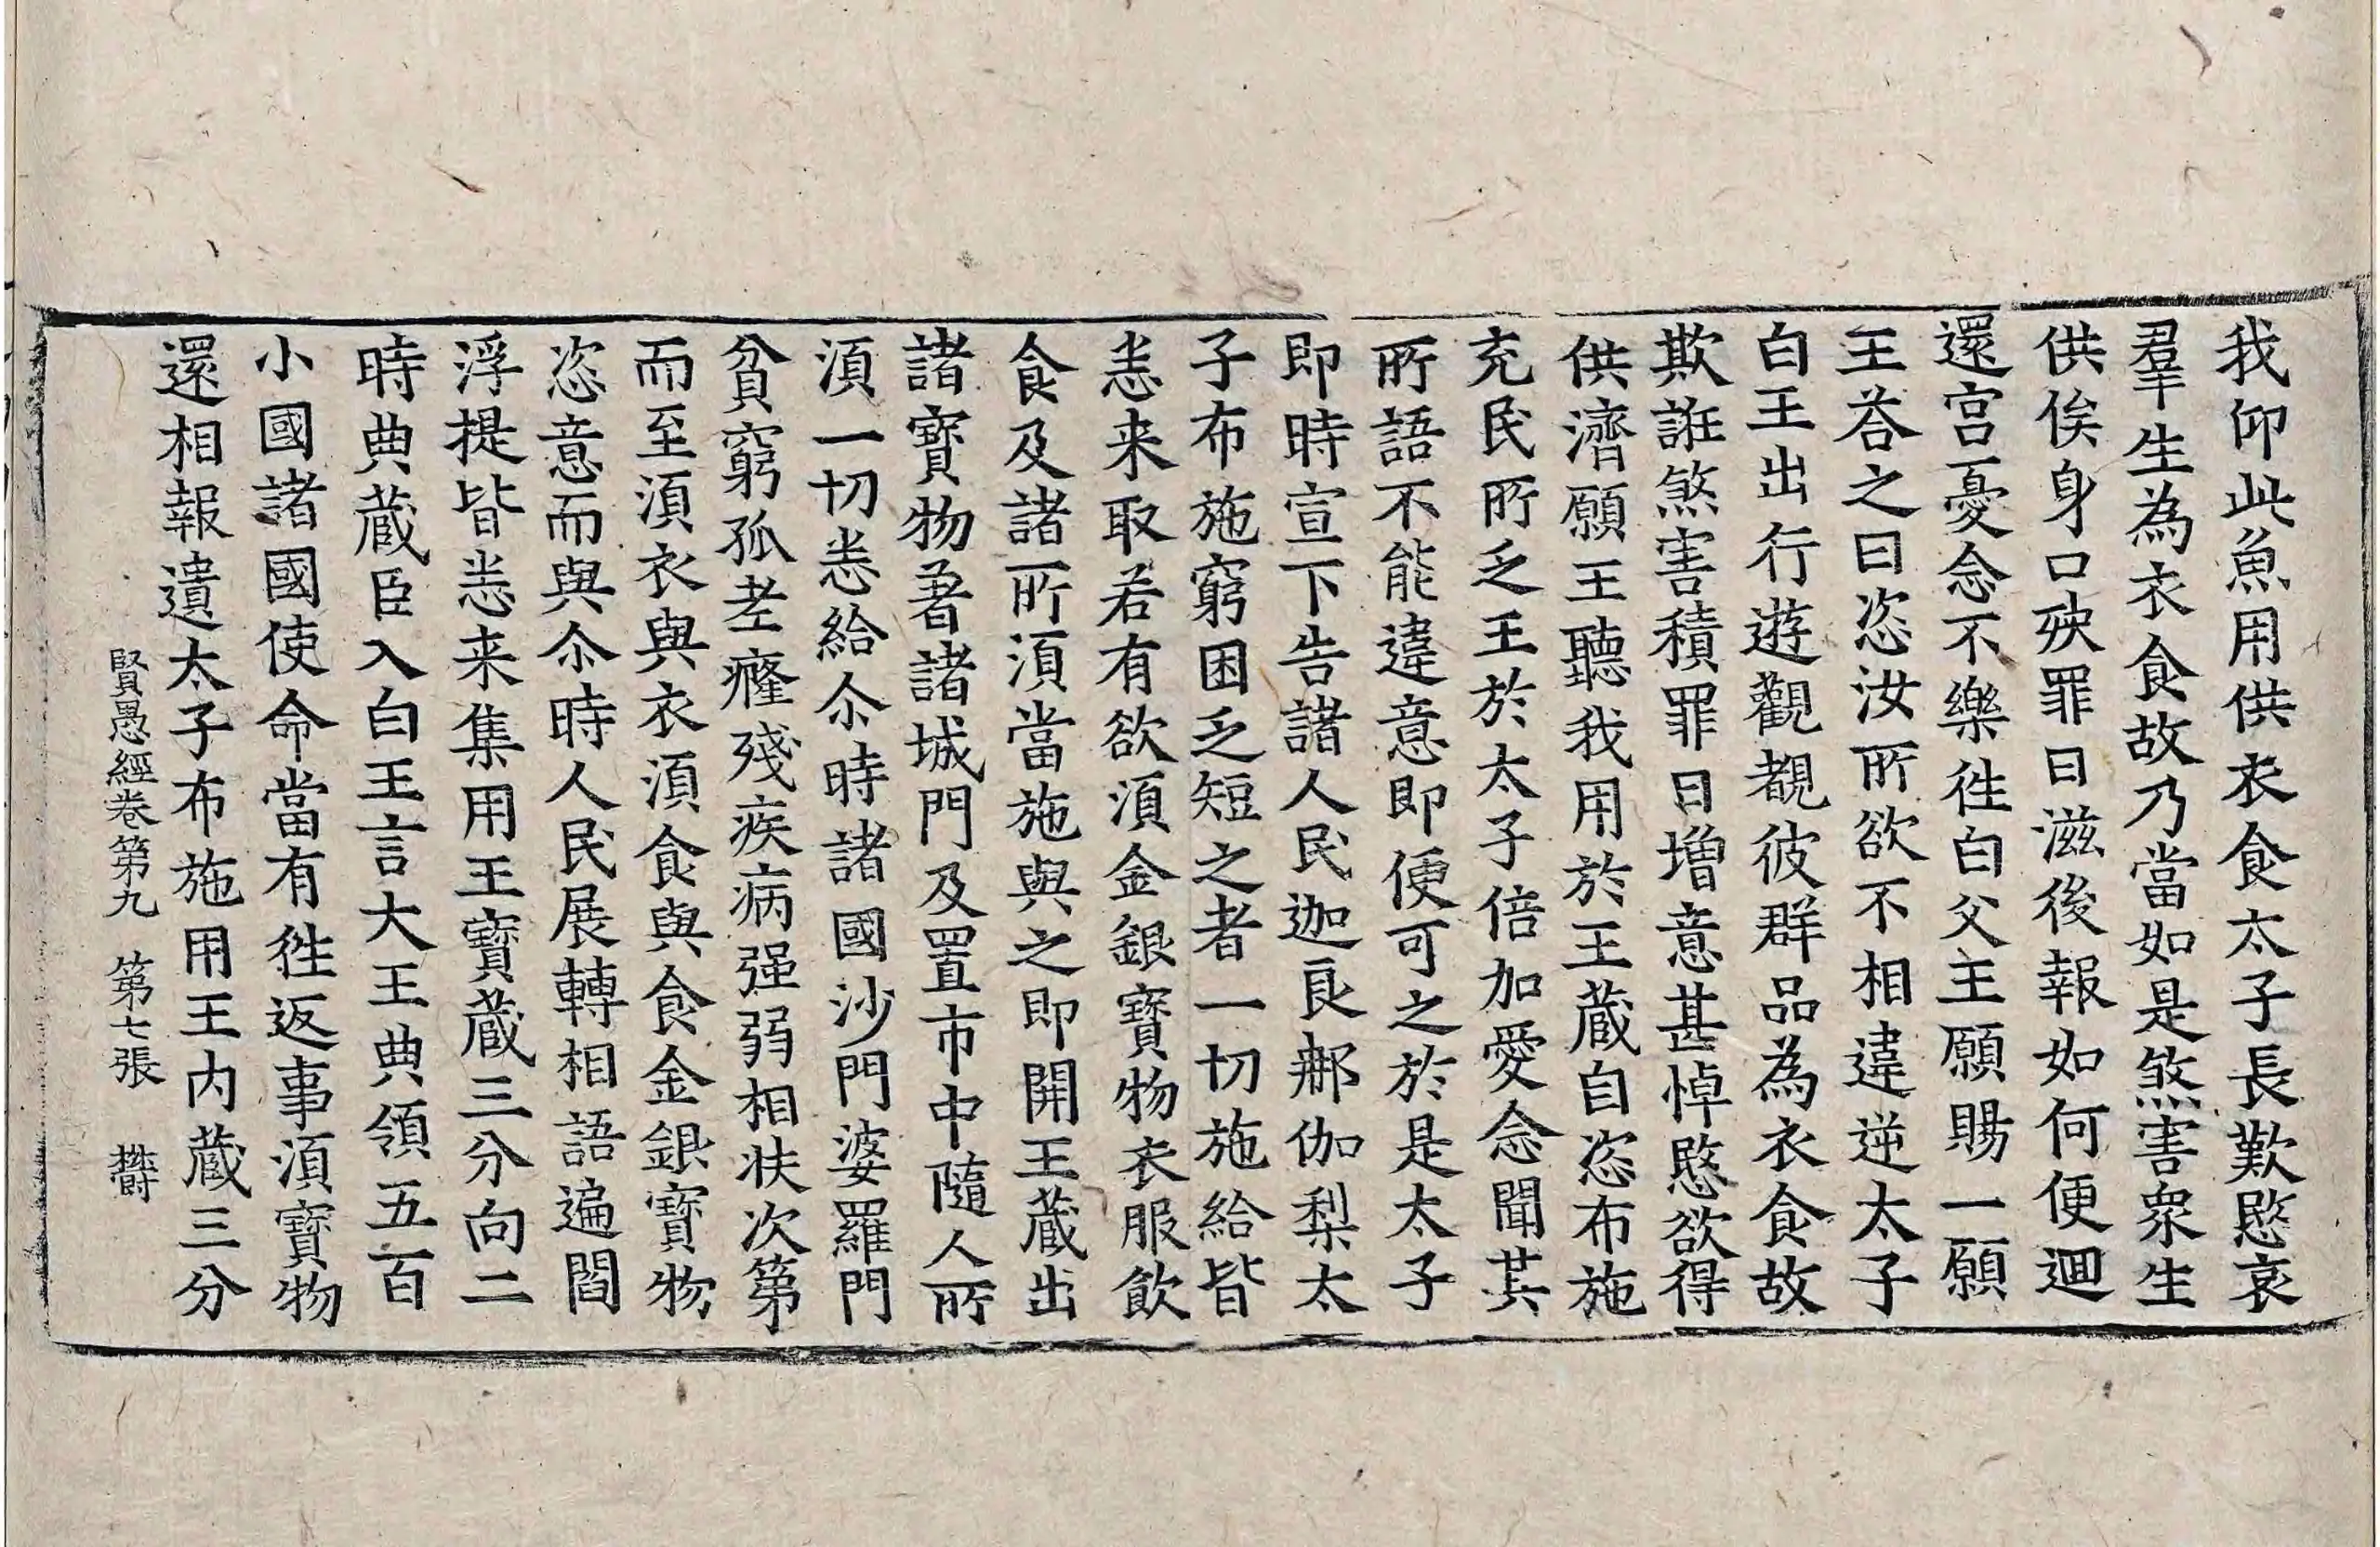 我仰此魚用供衣食太子長歎愍哀
羣生為衣食故乃當如是煞害衆生
供俟身口殃罪日滋後報如何便迴
還宮憂念不樂徃白父主願賜一願
王荅之曰恣汝所欲不相違逆太子
白王出行遊觀覩彼群品為衣食故
欺誑煞害積罪日增意甚悼愍欲得
供濟願王聽我用於王蔵自恣布施
充民所乏王於太子倍加愛念聞其
所語不能違意即便可之於是太子
即時宣下告諸人民迦良那伽梨太
子布施窮困乏短之者一切施給皆
悉来取若有欲湏金銀寶物衣服飲
食及諸所湏當施與之即開王蔵出
諸寶物著諸城門及置市中隨人所
湏一切悉給尒時諸國沙門婆羅門
貧窮孤老癃殘疾病强弱相扶次第
而至湏衣與衣湏食與食金銀寶物
恣意而與尒時人民展轉相語遍閻
浮提皆悉来集用王寶蔵三分向二
時典蔵臣入白王言大王典領五百
小國諸國使命當有徃返事湏寶物
還相報遺太子布施用王内蔵三分
賢愚經卷第九　第七張　欝